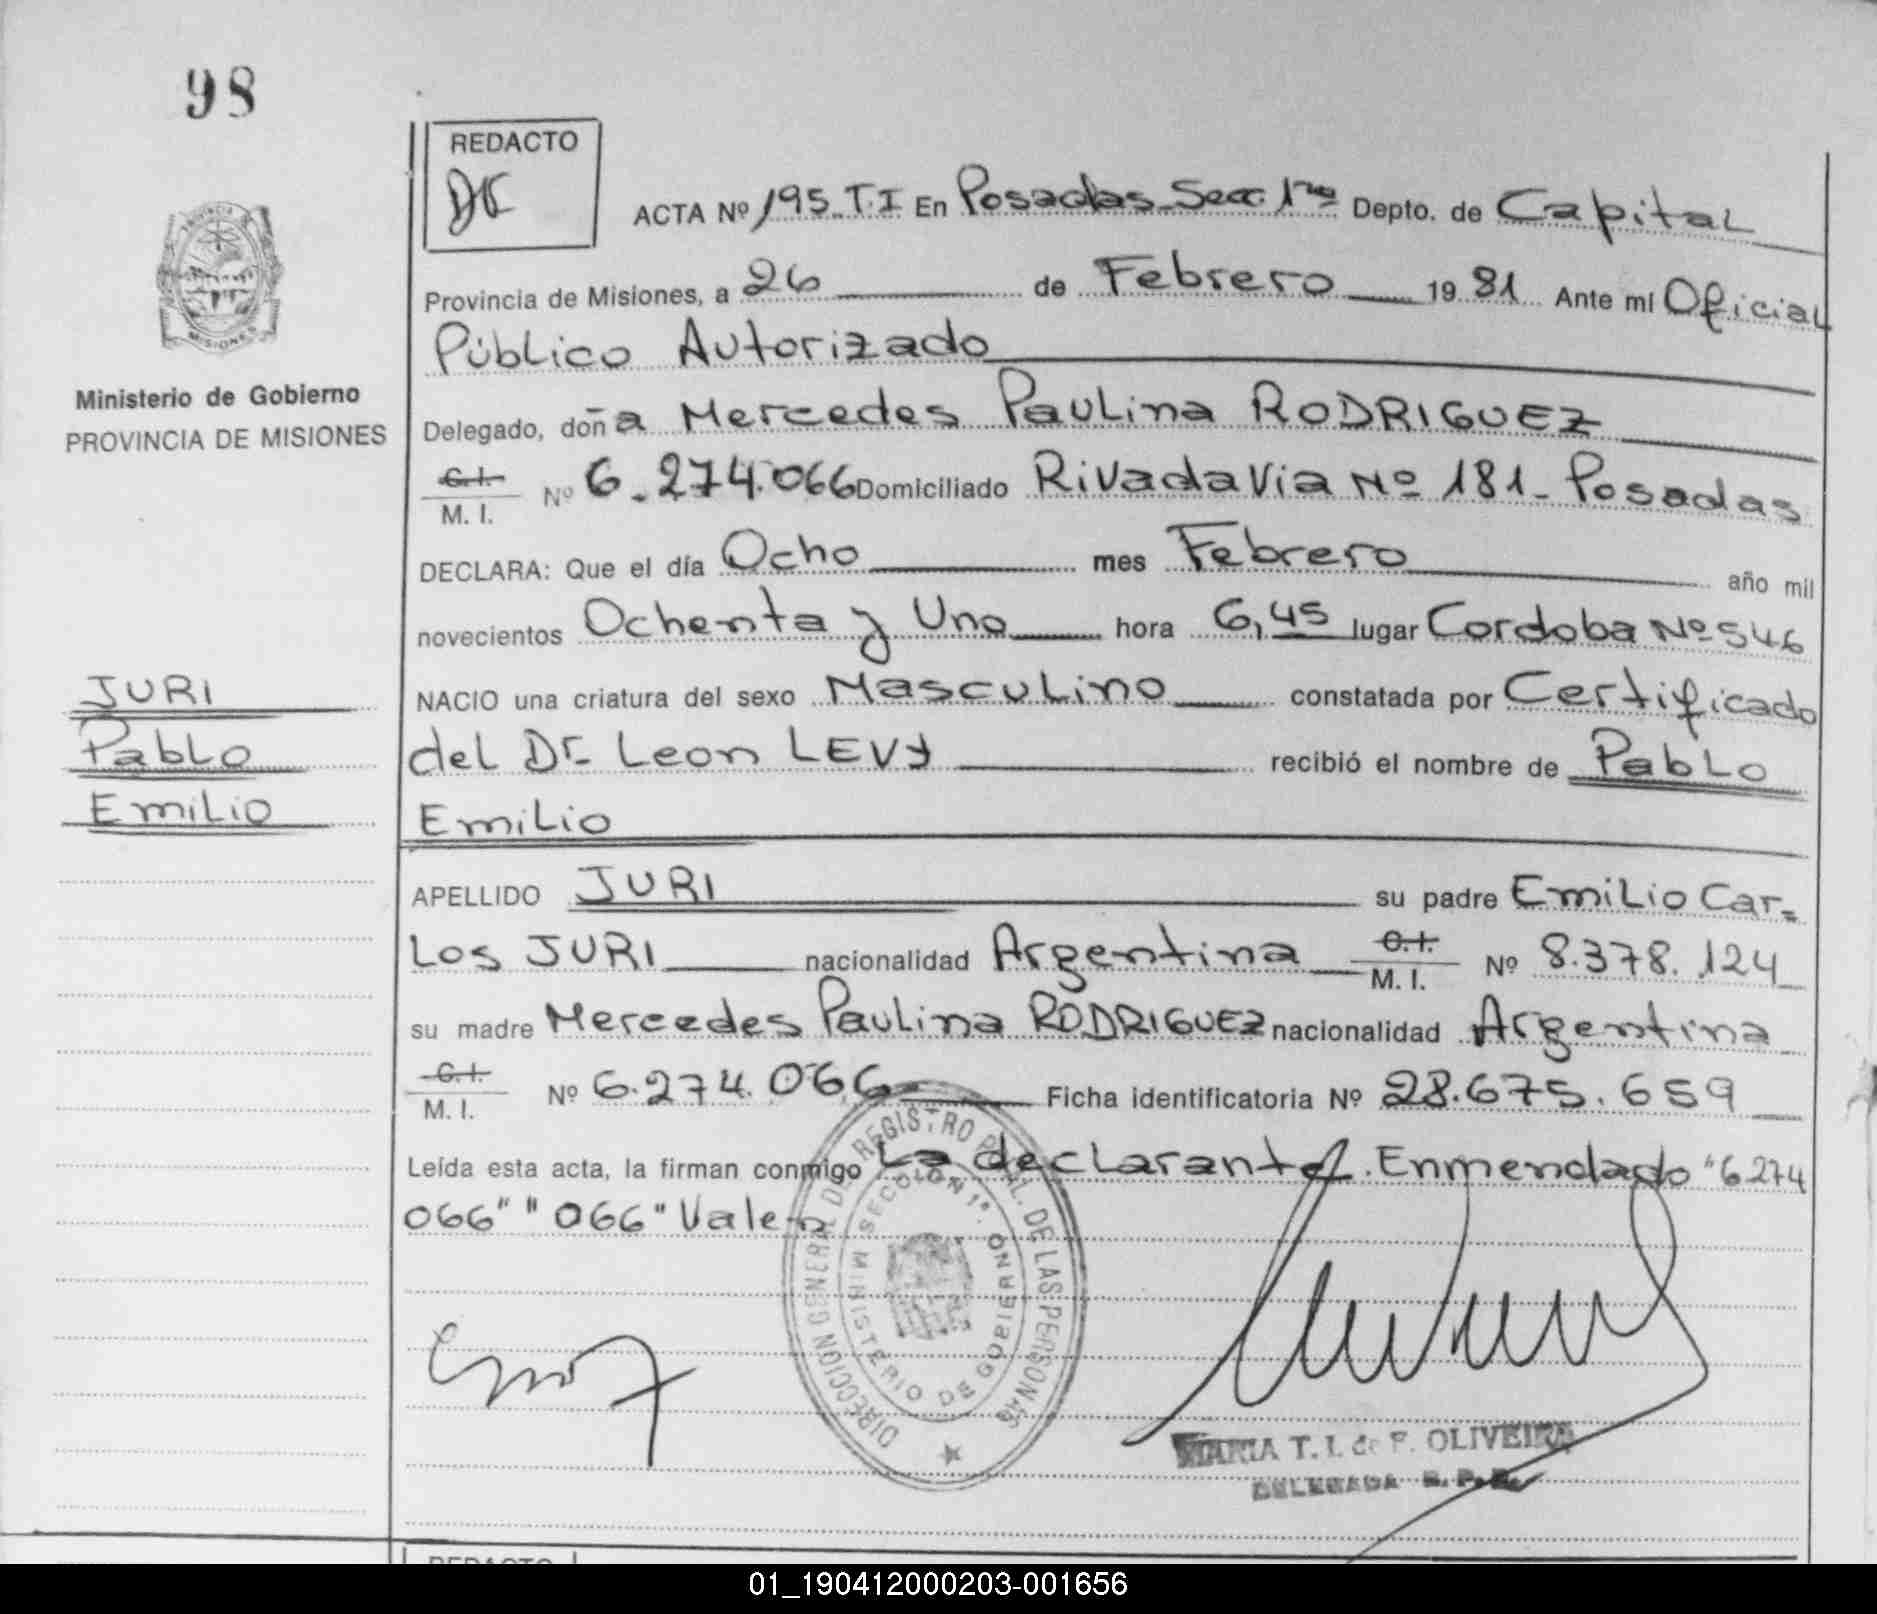 98
REDACTO
ACTA Nº 195 T.I En Posadas Secc. 1ra Depto. de Capital
Provincia de Misiones, a 26 de Febrero 1981 Ante mí Oficial
Público Autorizado
PROVINCIA DE
MISIONES
Ministerio de Gobierno
PROVINCIA DE MISIONES
Delegado, doña Mercedes Paulina RODRIGUEZ
C.I.
M. I. Nº 6.274.066 Domiciliado Rivadavia Nº 181 - Posadas
DECLARA: Que el día Ocho mes Febrero año mil
novecientos Ochenta y Uno hora 6,45 lugar Cordoba Nº 546
JURI
Pablo
Emilio
NACIO una criatura del sexo Masculino constatada por Certificado
del Dr. Leon LEVY recibió el nombre de Pablo
Emilio
APELLIDO JURI su padre Emilio Car=
los JURI nacionalidad Argentina C.I. M. I. Nº 8.378.124
su madre Mercedes Paulina RODRIGUEZ nacionalidad Argentina
C.I.
M. I. Nº 6.274.066 Ficha identificatoria Nº 28.675.659
Leída esta acta, la firman conmigo La declarante. Enmendado "6.274
066" "066" Valen
DIRECCION GENERAL DE REGISTRO PCIAL. DE LAS PERSONAS
MINISTERIO DE GOBIERNO
SECCION 1ª.
MARIA T. I. de F. OLIVEIRA
DELEGADA R. P. P.
REDACTO
01_190412000203-001656